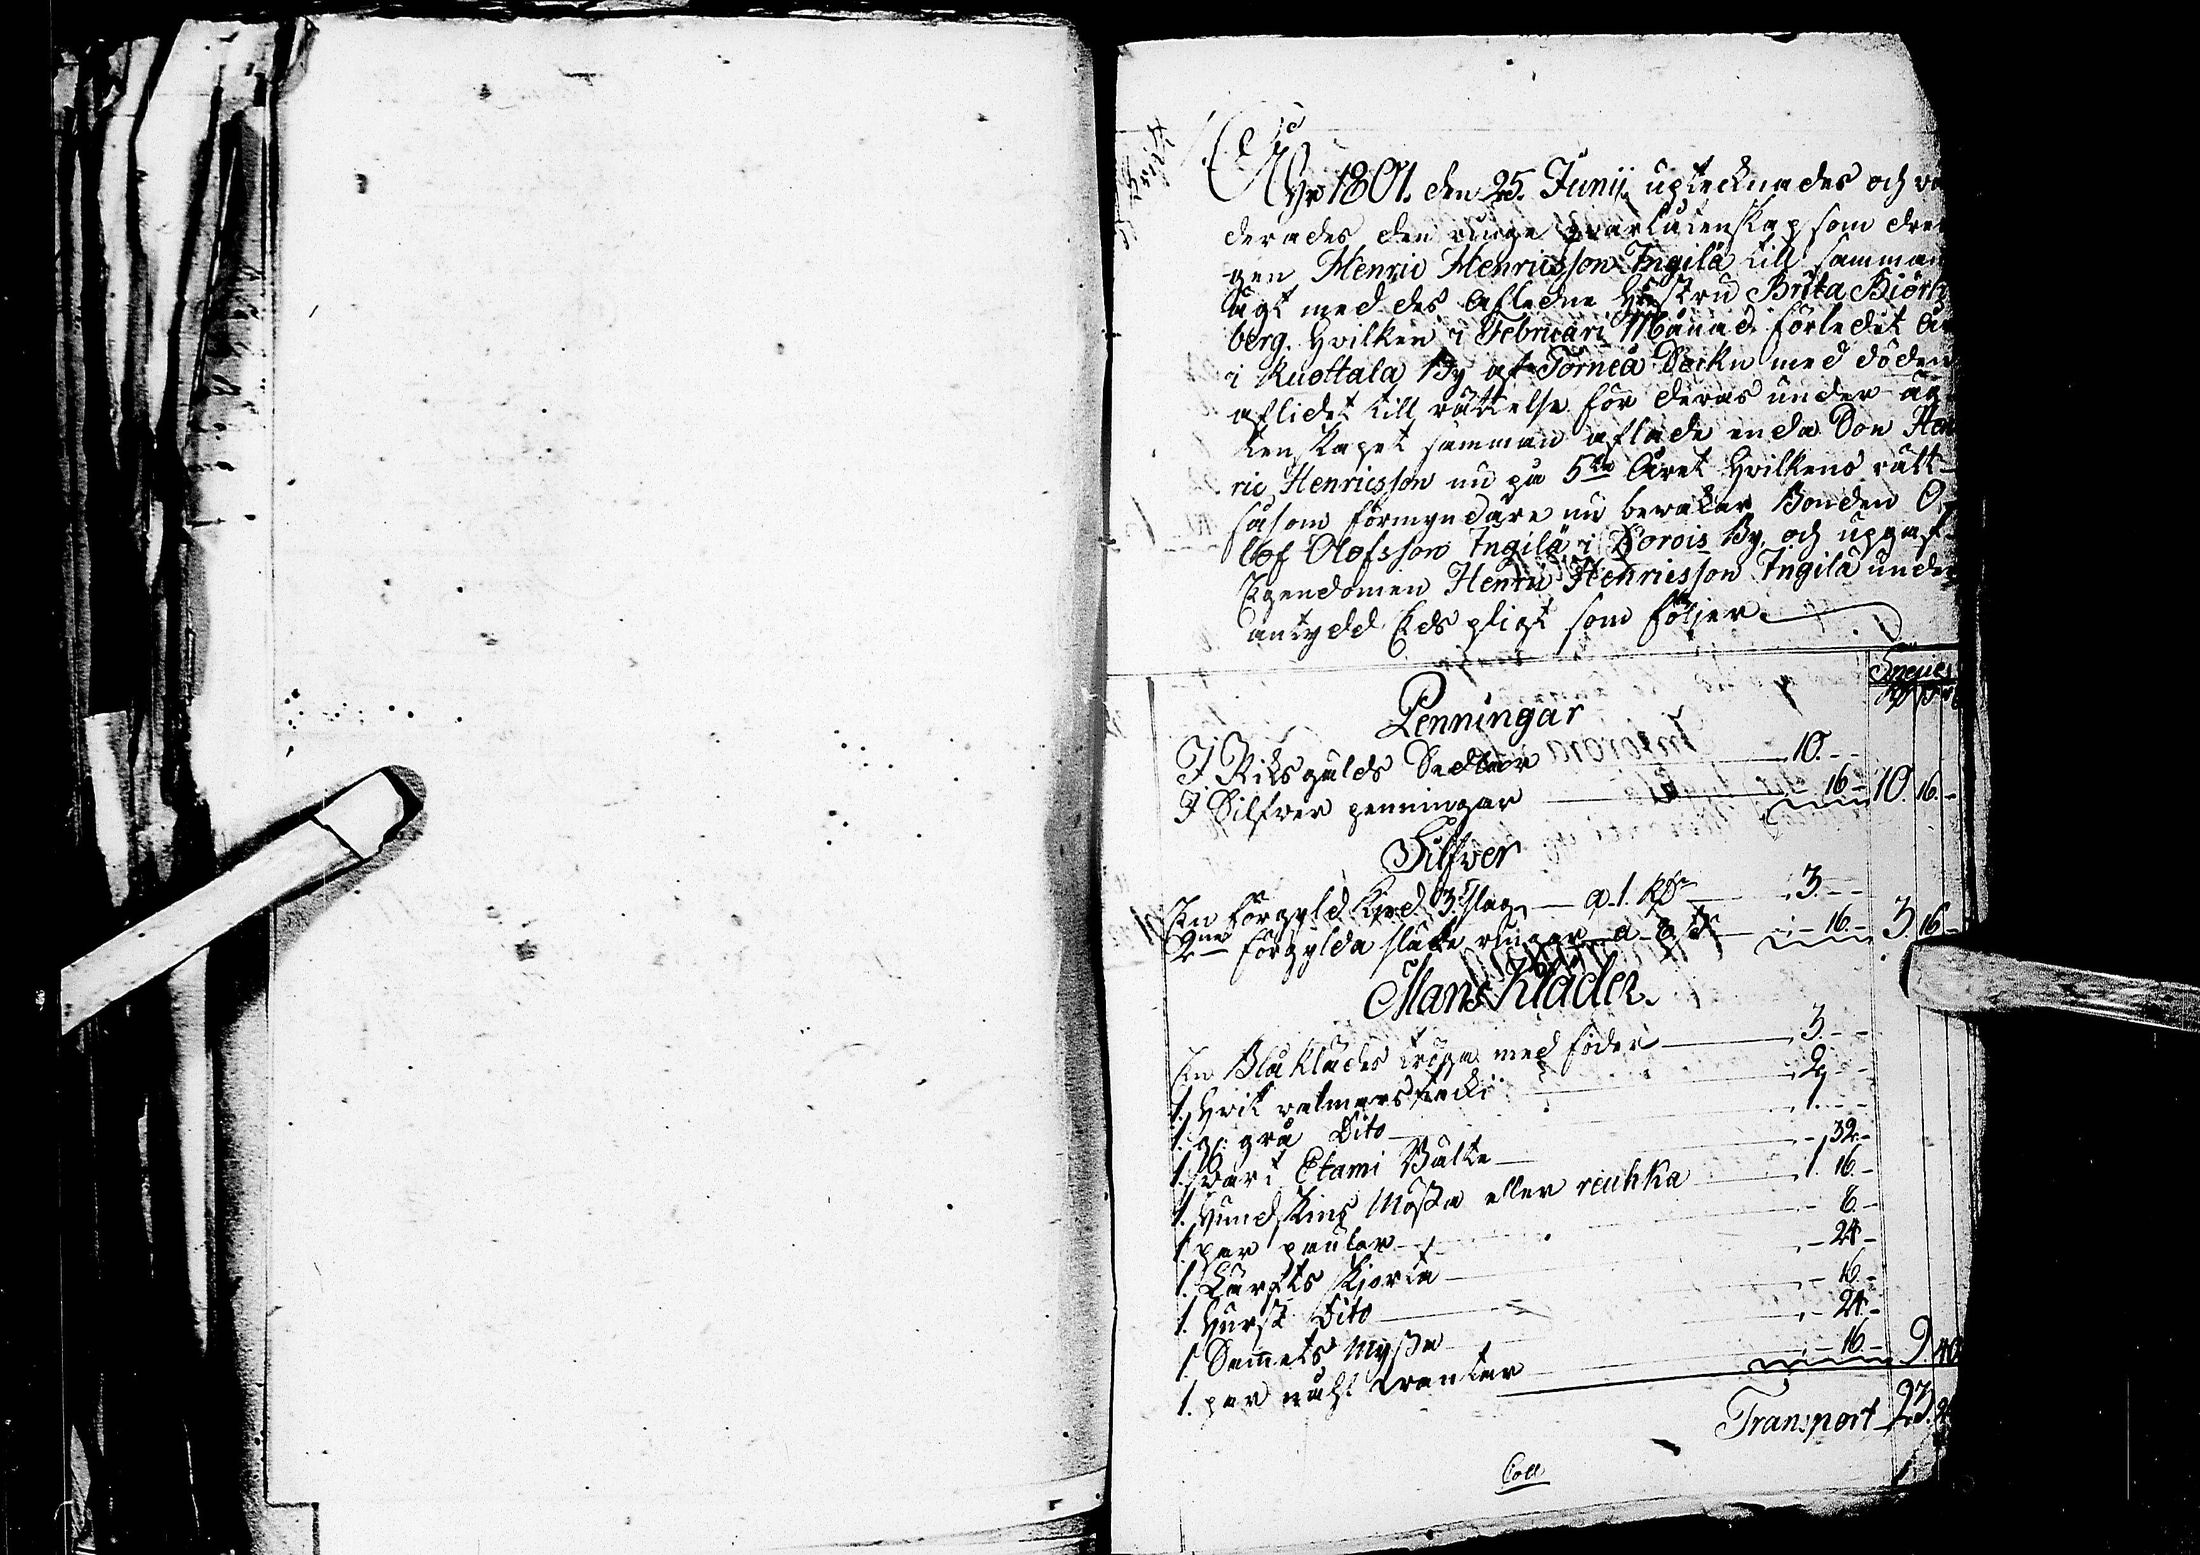 Åhr 1801. den 25. Junij uptecknades och vär
derades den ringa qvarlåtenskap som drän
gen Henric Henricsson Ingilä till samman
ägt med des afledne hustru Brita Biörn
berg. hvilken i Februari Månad förledit år
i Kuottala By af Torneå Sockn med döden
aflidet till rättelse för deras under äg
tenskapet samman aflade enda Son Hen
ric Henricsson nu på 5te Året hvilkens rätt
såsom förmyndare nu bevakar Bonden O
lof Olofsson Ingilä i Korois By, och uppgaf
Egendomen Henric Henricsson Ingilä under
antydd Eds pligt som följer
Species
Penningar
I Riksgälds Sedlar 10. - -
I Silfver penningar - 16 - 10. 16. -
Silfver
En förgyld Ked 3. slag a 1. Rd 3. - -
2ne förgylda släta ringar a 8 s - 16. - 3. 16 -
Mans Kläder.
En Blå Klädes tröja med foder 3. - -
1. hvit valmars 2. - -
1. grå Dito 1. - -
1. svart Etami Bälte - 32 -
1. hundskins Mössa eller reuhka 1. 16. -
1. par - 8. -
1. Lärfts skjorta - 24 -
1. hurst Dito - 16. -
1 Sammets Myssa - 24. -
1. par vantar - 16. - 9. 40
Transport 23. 2
Coll